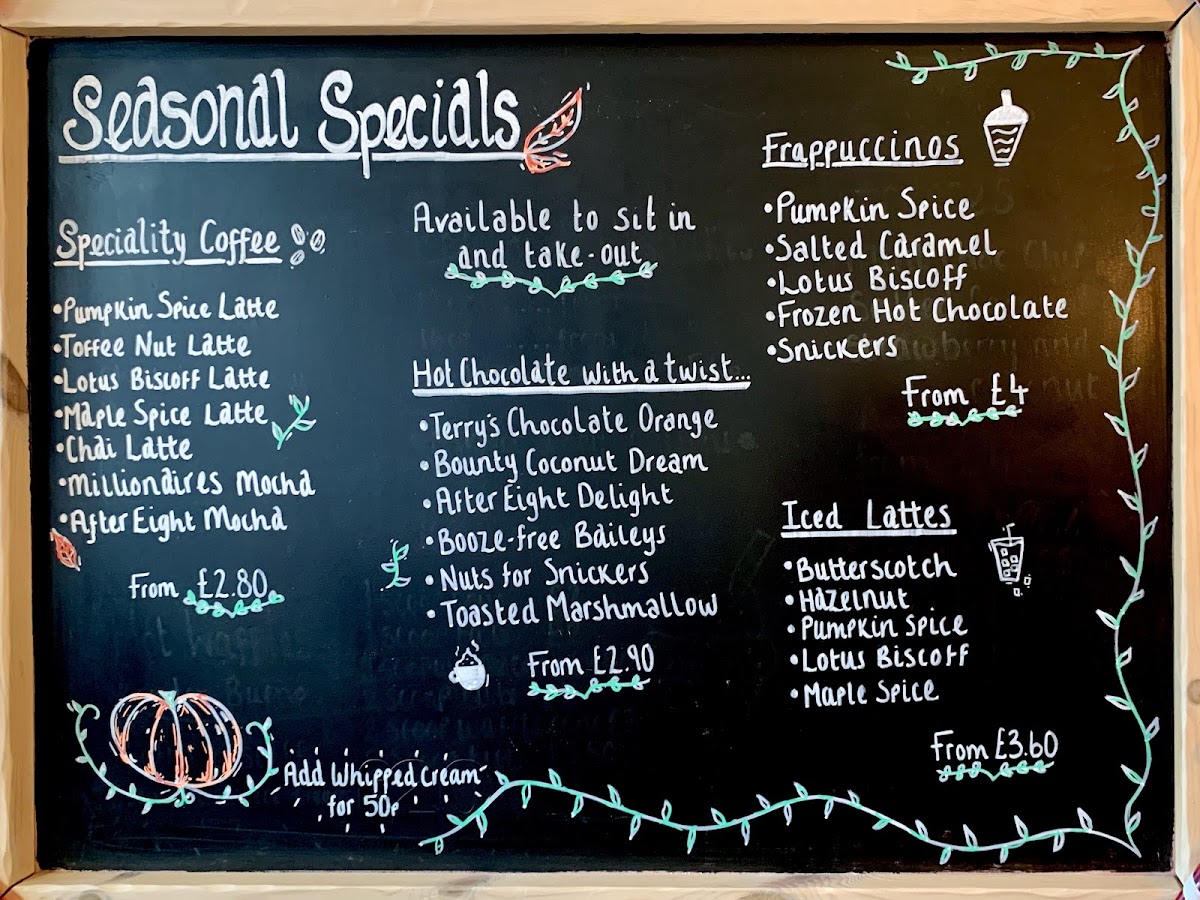 Seasonal Specials
Speciality Coffee
•Pumpkin Spice Latte
•Toffee Nut Latte
•Lotus Biscoff Latte
•Maple Spice Latte
•Chai Latte
•Millionaires Mocha
•After Eight Mocha
From £2.80
Add Whipped Cream
for 50p
Available to sit in
and take-out
Hot Chocolate with a twist...
•Terry's Chocolate Orange
•Bounty Coconut Dream
•After Eight Delight
•Booze-free Baileys
•Nuts for Snickers
•Toasted Marshmallow
From £2.90
Frappuccinos
•Pumpkin Spice
•Salted Caramel
•Lotus Biscoff
•Frozen Hot Chocolate
•Snickers
From £4
Iced Lattes
•Butterscotch
•Hazelnut
•Pumpkin Spice
•Lotus Biscoff
•Maple Spice
From £3.60